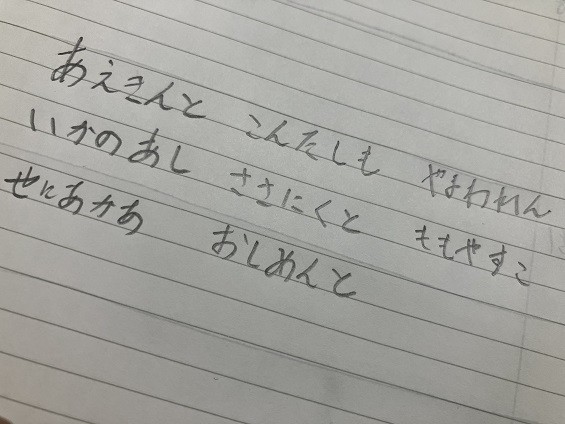 あえきんと こんたしも やまわれん
いかのあし ささにくと ももやすこ
せにあかあ おしめんと